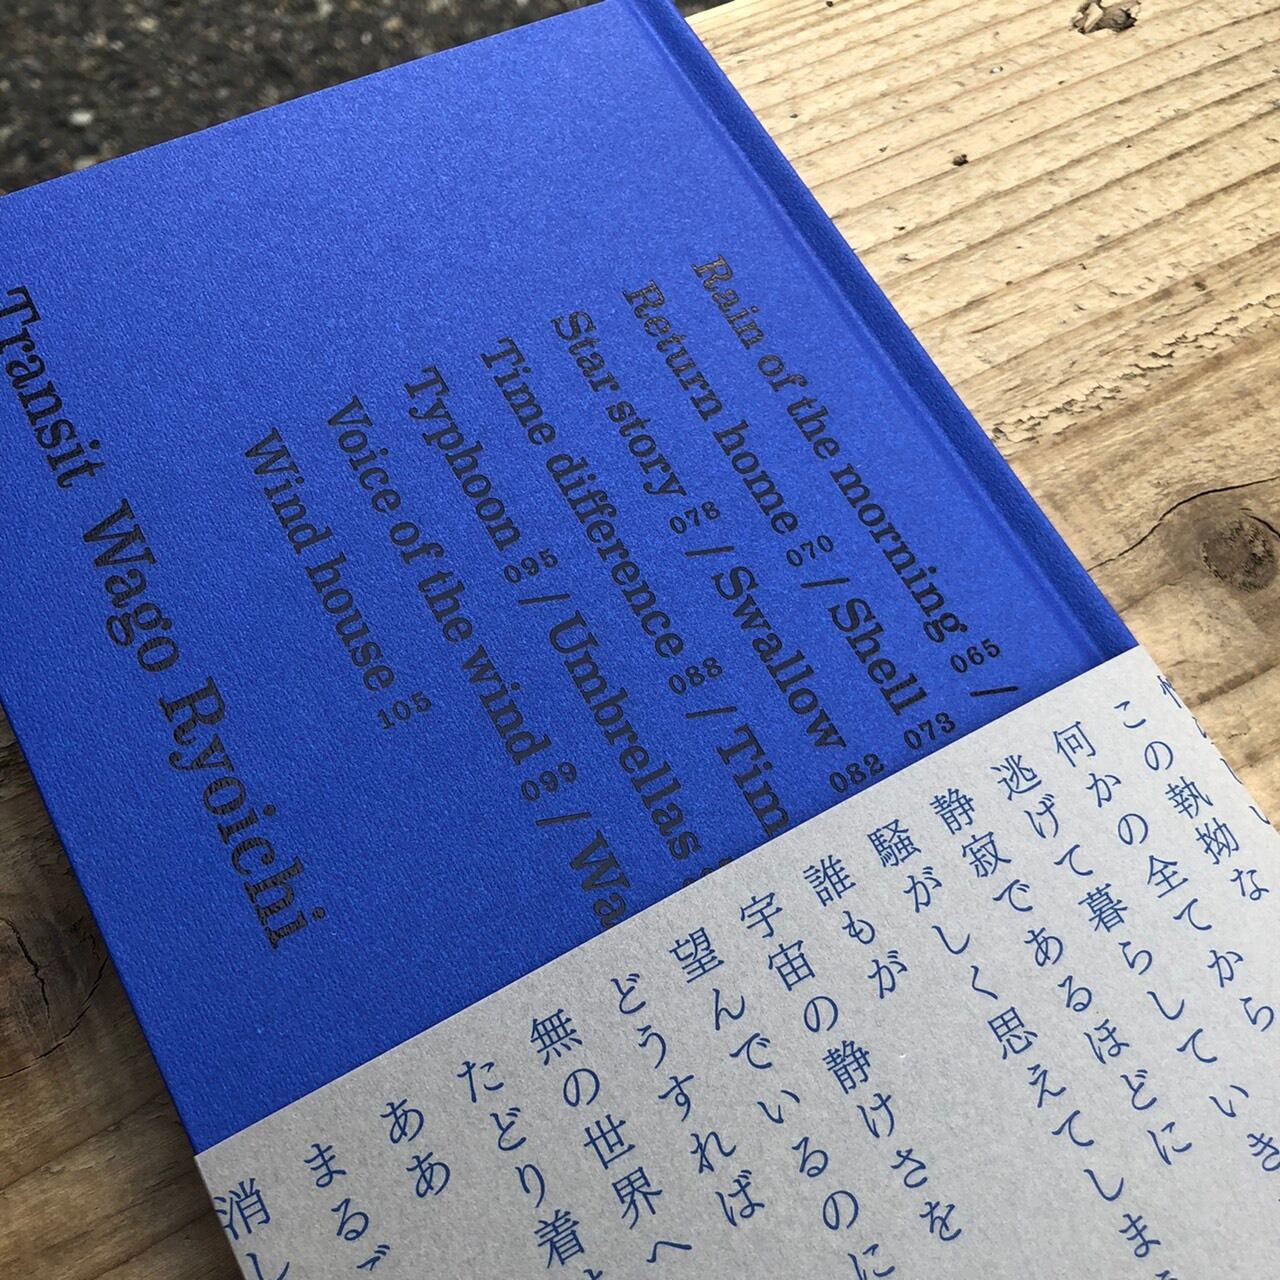 Rain of the morning 065 /
Return home 070 / Shell 073
Star story 078 / Swallow 082
Time difference 088 / Tim
Typhoon 095 / Umbrellas
Voice of the wind 099 / Wa
Wind house 105
Transit Wago Ryoichi
この執拗な
何かの全てから
逃げて暮らしていき
静寂であるほどに
騒がしく思えてしま
誰もが
宇宙の静けさを
望んでいるのに
どうすれば
無の世界へ
たどり着
ああ
まるご
消し